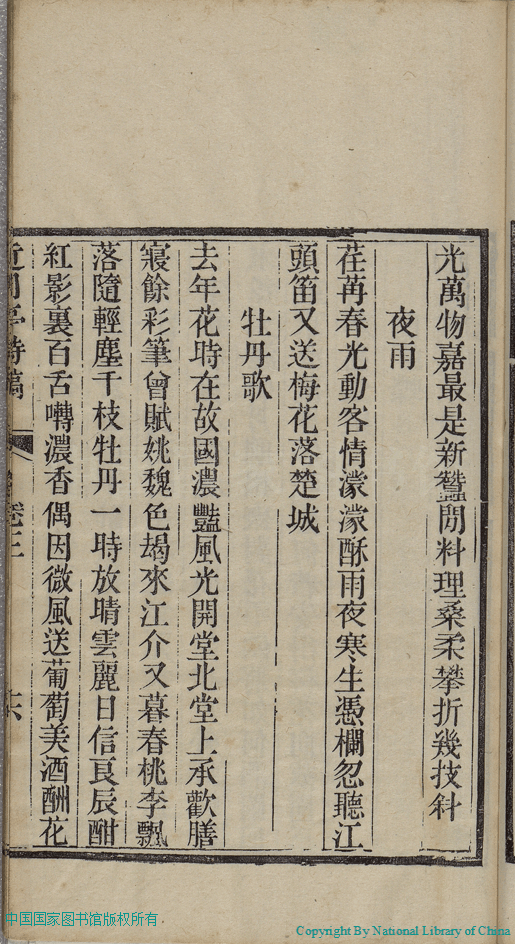 光萬物嘉最是新蠶閒料理桑柔攀折幾技斜
夜雨
荏苒春光動客情濛濛酥雨夜寒生憑欄忽聽江
頭笛又送梅花落楚城
牡丹歌
去年花時在故國濃豔風光開堂北堂上承歡膳
寢餘彩筆曾賦姚魏色朅來江介又暮春桃李飄
落隨輕塵千枝牡丹一時放晴雲麗日信良辰酣
紅影裏百舌囀濃香偶因微風送葡萄美酒酬花
亭詩稿
卷三
中国国家图书馆版权所有
Copyright By National Library of China